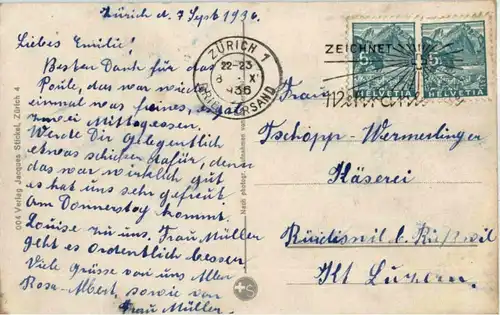 Zürich d. 7 Sept 1936.
Liebes Emilie!
Besten Dank für das
Poule, das war wieder
einmal was feines, zum
zwei Mittagessen.
Werde Dir Gelegentlich
etwas schicken dafür, denn
das war wirklich gut
es hat uns sehr gefreut
Am Donnerstag kommt
Louise zu uns. Frau Müller
geht es Ordentlich besser
Viele Grüsse von uns Allen
Rosa-Albert, sowie von
Frau Müller.
004 Verlag Jacques Stickel, Zürich 4
Nach photogr. Aufnahmen
ZÜRICH 1
22-23
1936
BRIEFVERSAND
ZEICHNET
HELVETIA
HELVETIA
Frau
Tschopp-Wermelinger
Käserei
Rüediswil b. Rußwil
Kt Luzern.